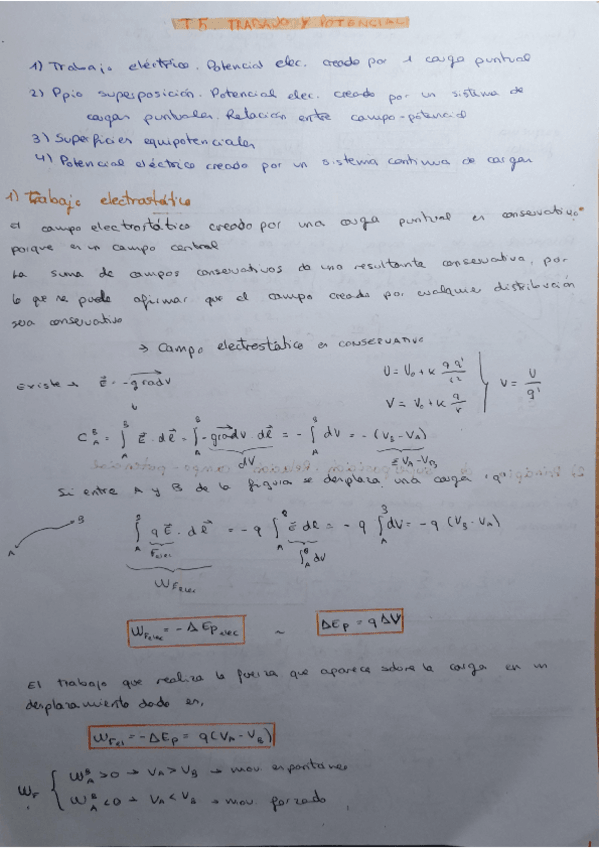 T5. TRABAJO Y POTENCIAL
1) Trabajo eléctrico. Potencial elec. creado por 1 carga puntual
2) Ppio superposición. Potencial elec. creado por un sistema de
cargas puntuales. Relación entre campo-potencial
3) Superficies equipotenciales
4) Potencial eléctrico creado por un sistema continua de cargas
1) Trabajo electrostático
El campo electrostático creado por una carga puntual es conservativo
porque es un campo central
La suma de campos conservativos da una resultante conservativa, por
lo que se puede afirmar que el campo creado por cualquier distribución
sea conservativo
→ Campo electrostático es CONSERVATIVO
Existe → E = -grad V
U = U₀ + K q q'/r²
V = V₀ + K q/r
V = U/q'
C_A^B = ∫_A^B E · dl = ∫_A^B -grad V dl = -∫_A^B dV = -(V_B - V_A)
dV
= V_A - V_B
Si entre A y B de la figura se desplaza una carga "q"
A B
∫_A^B q E · dl = -q ∫_A^B E dl = -q ∫_A^B dV = -q (V_B - V_A)
F_elec
∫_A^B dV
W_Felec
W_Felec = -ΔEp_elec ~ ΔEp = qΔV
El trabajo que realiza la fuerza que aparece sobre la carga en un
desplazamiento dado es,
W_Fel = -ΔEp = q(V_A - V_B)
W_F { W_A^B > 0 → V_A > V_B → mov. espontaneo
W_A^B < 0 → V_A < V_B → mov. forzado